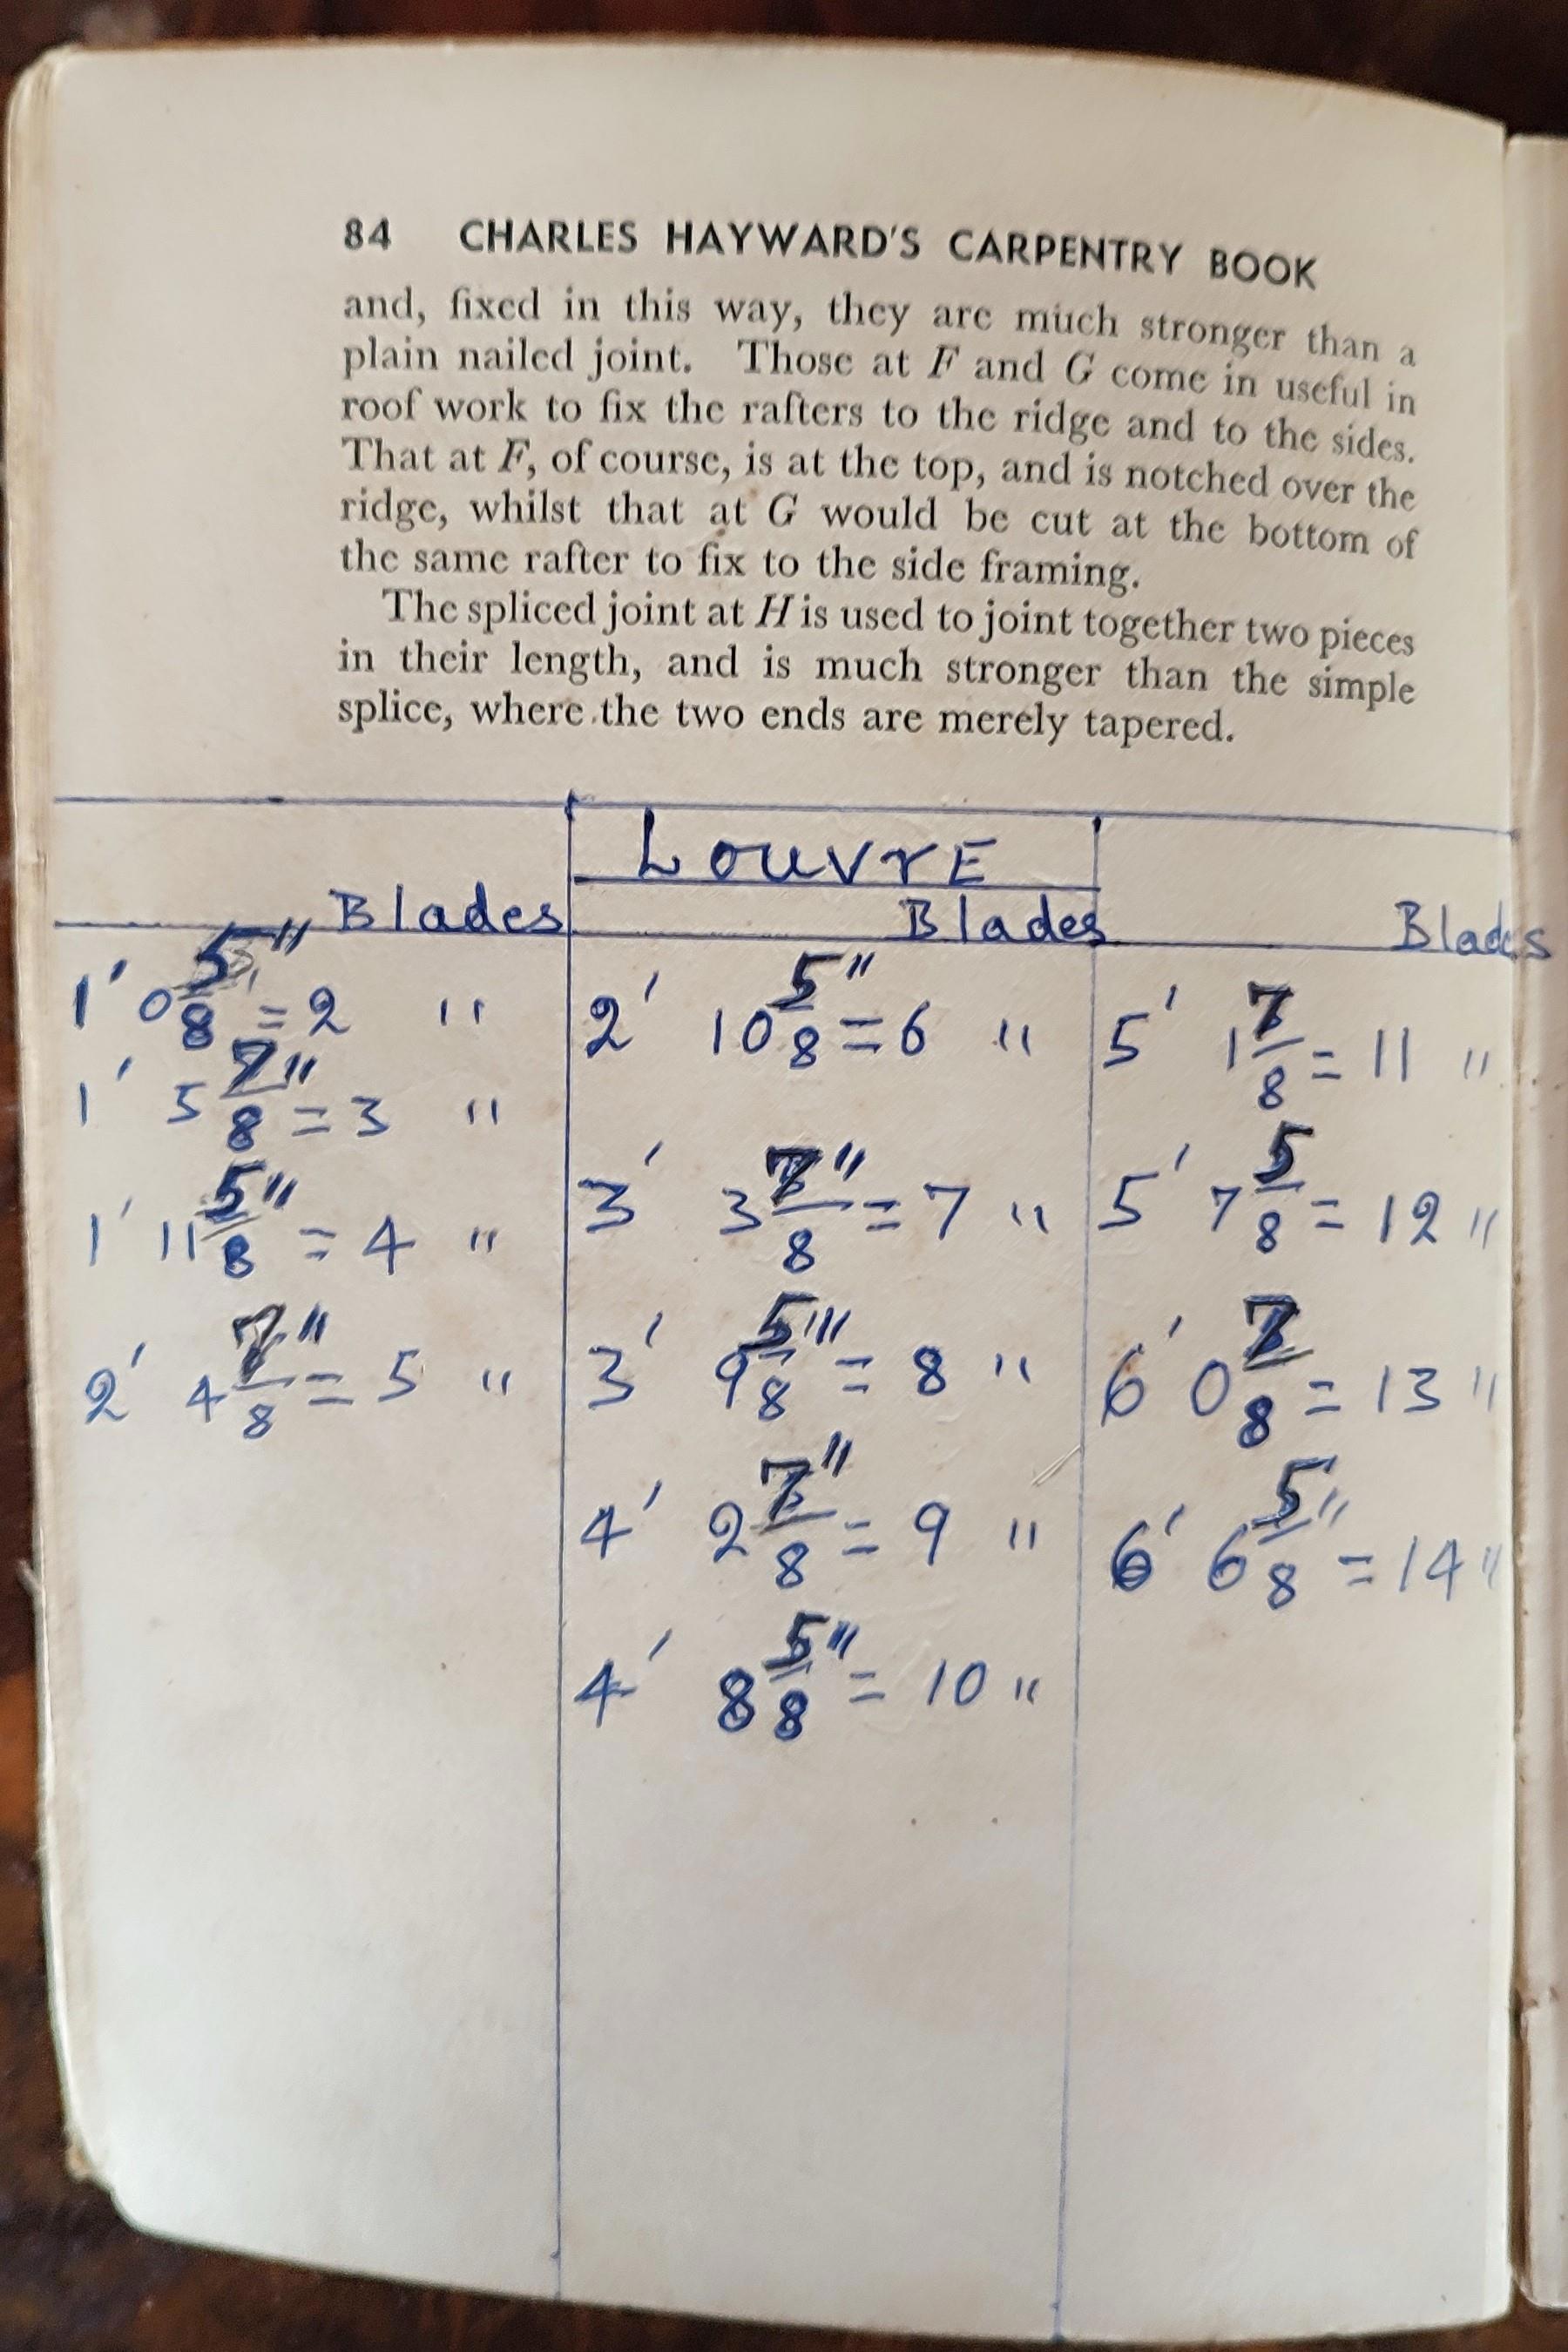 84 CHARLES HAYWARD'S CARPENTRY BOOK
and, fixed in this way, they are much stronger than a
plain nailed joint. Those at F and G come in useful in
roof work to fix the rafters to the ridge and to the sides.
That at F, of course, is at the top, and is notched over the
ridge, whilst that at G would be cut at the bottom of
the same rafter to fix to the side framing.
The spliced joint at H is used to joint together two pieces
in their length, and is much stronger than the simple
splice, where the two ends are merely tapered.
LouvrE
Blades
1' 0 5/8" = 2 "
1' 5 7/8" = 3 "
1' 11 5/8" = 4 "
2' 4 7/8" = 5 "
Blades
2' 10 5/8" = 6 "
3' 3 7/8" = 7 "
3' 9 5/8" = 8 "
4' 2 7/8" = 9 "
4' 8 5/8" = 10 "
Blades
5' 1 7/8 = 11 "
5' 7 5/8 = 12 "
6' 0 7/8 = 13 "
6' 6 5/8" = 14 "